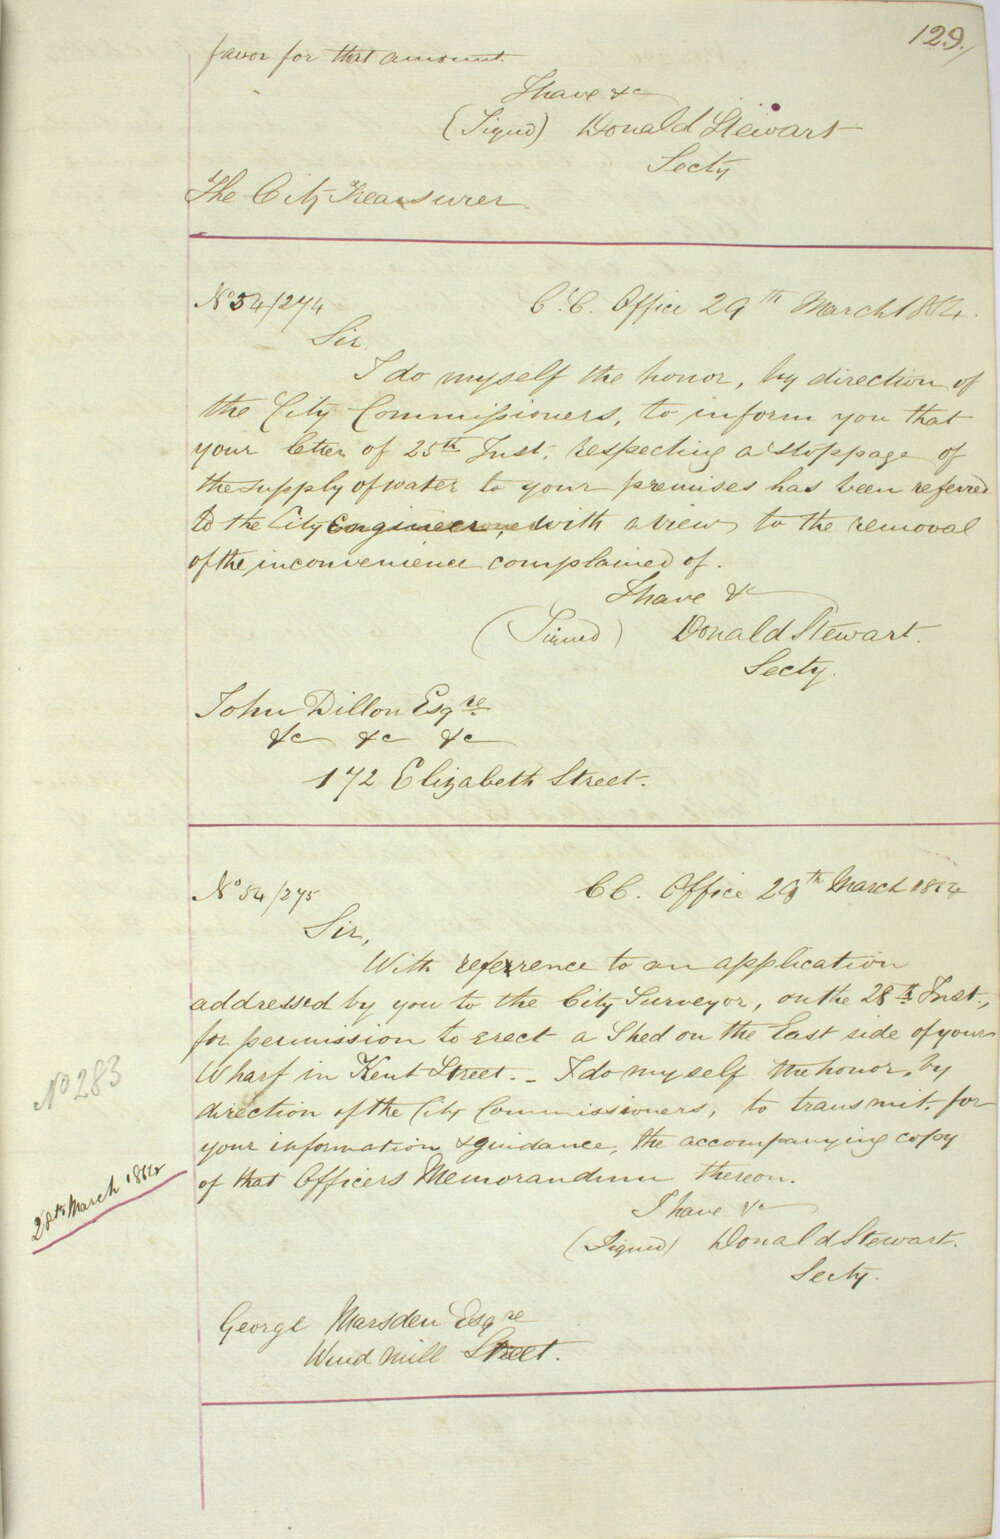 129.
favor for that amount.
I have &c
(Signed) Donald Stewart
Secty
The City Treasurer.
No 54/274
C. C. Office 29th March 1854.
Sir,
I do myself the honor, by direction of
the City Commissioners, to inform you that
your letter of 25th Inst. respecting a stoppage of
the supply of water to your premises has been referred
to the City Engineer, with a view to the removal
of the inconvenience complained of.
I have &c
(Signed) Donald Stewart.
Secty.
John Dillon Esqre
&c &c &c
172 Elizabeth Street.
No 54/275
C C. Office 29th March 1854
Sir,
With reference to an application
addressed by you to the City Surveyor, on the 28th Inst.,
for permission to erect a Shed on the East side of your
Wharf in Kent Street. - I do myself the honor, by
direction of the City Commissioners, to transmit, for
No 283
your information & guidance, the accompanying copy
of that Officers Memorandum thereon.
28th March 1854
I have &c
(Signed) Donald Stewart.
Secty.
George Marsden Esqre
Wind mill Street.